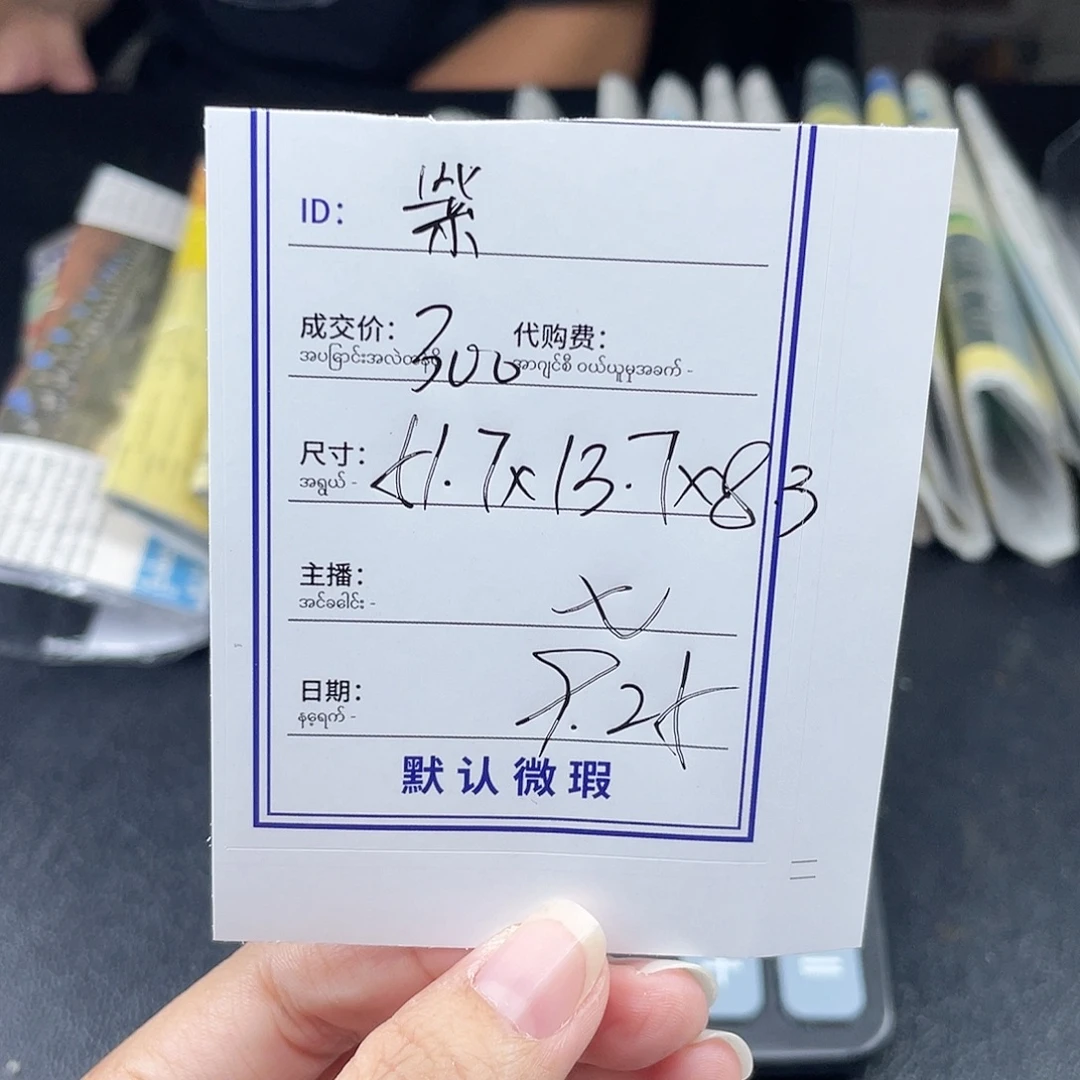 ID： 柴
成交价： 300 代购费：
အပြောင်းအလဲတန်ဖိုး အာဂျင်စီ ဝယ်ယူမှုအခက် -
尺寸： 41.7x13.7x8.3
အရွယ် -
主播：
အင်ခါေါင်း -
日期： 7.25
နေ့ရက် -
默认微瑕